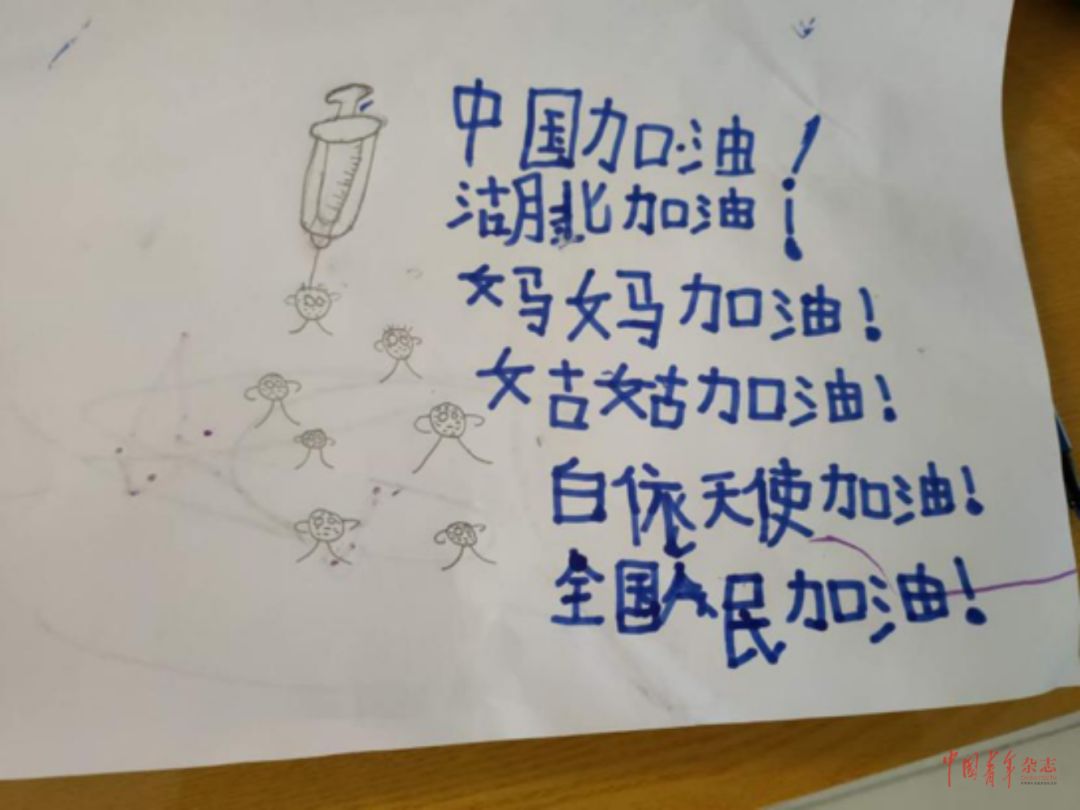 中国加油！
湖北加油！
妈妈加油！
姑姑加油！
白依天使加油！
全国人民加油！
中国青年杂志